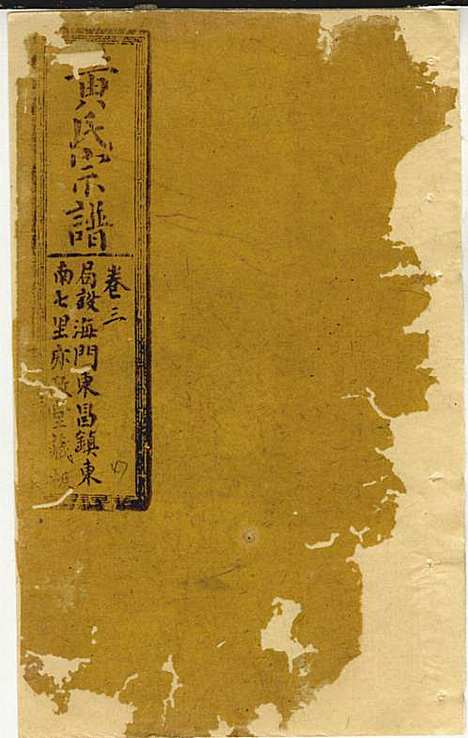 黄氏宗譜
卷三
局設海門東昌鎮東
南七里